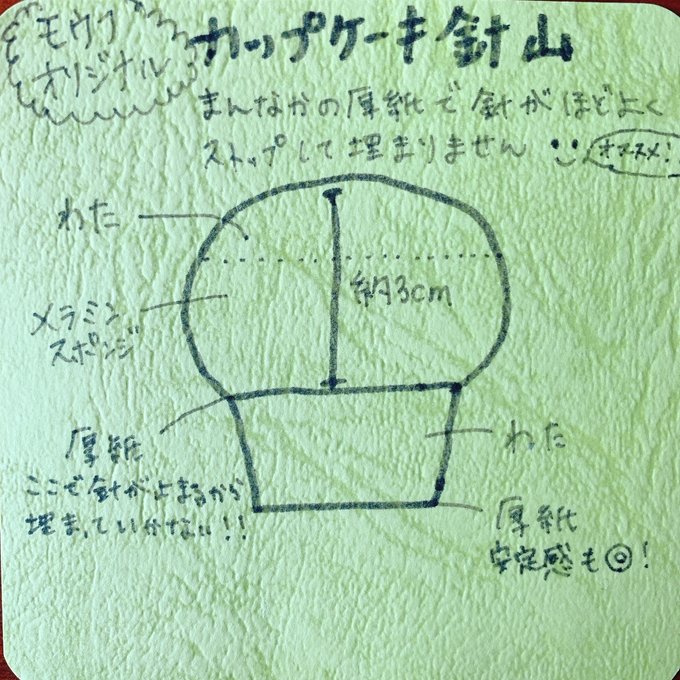 モウフ
オリジナル
カップケーキ針山
まんなかの厚紙で針がほどよく
ストップして埋まりません
オススメ!
わた
約3cm
メラミン
スポンジ
厚紙
ここで針がとまるから
埋まっていかない!!
わた
厚紙
安定感も◎!